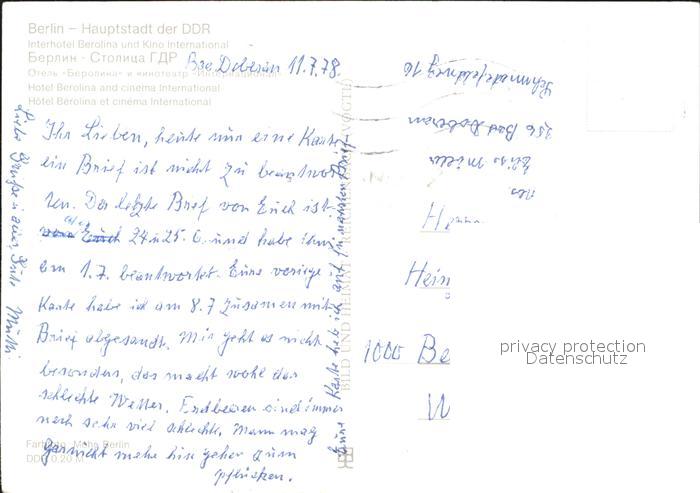 Berlin – Hauptstadt der DDR
Interhotel Berolina und Kino International
Берлин · Столица ГДР
Отель «Беролина» и кинотеатр «Интернациональ»
Hotel Berolina and cinema International
Hôtel Bérolina et cinéma International
Bad Doberan 11.7.78.
Ihr Lieben, heute nur eine Karte
ein Brief ist nicht zu beantwor
ten. Der letzte Brief von Euch ist
24 u 25. 6. und habe ihn
am 1.7. beantwortet. Eure vorige
Karte habe ich am 8.7 zusamen mit
Brief abgesandt. Mir geht es nicht
besonders, das macht wohl das
schlechte Wetter. Erdbeeren sind immer
noch sehr viel schlechte. Mann mag
garnicht mehr hin gehen zum
pflücken.
Liebe Grüße u. Mutti
Eure Karte heb ich auf
Abs
Elise Müller
256 Bad Doberan
16
He
Hein
1000 Be
W
privacy protection
Datenschutz
BILD UND HEIMAT REICHENBACH (VOGTL)
Farbfoto: Mohs Berlin
DDR 0,20 M